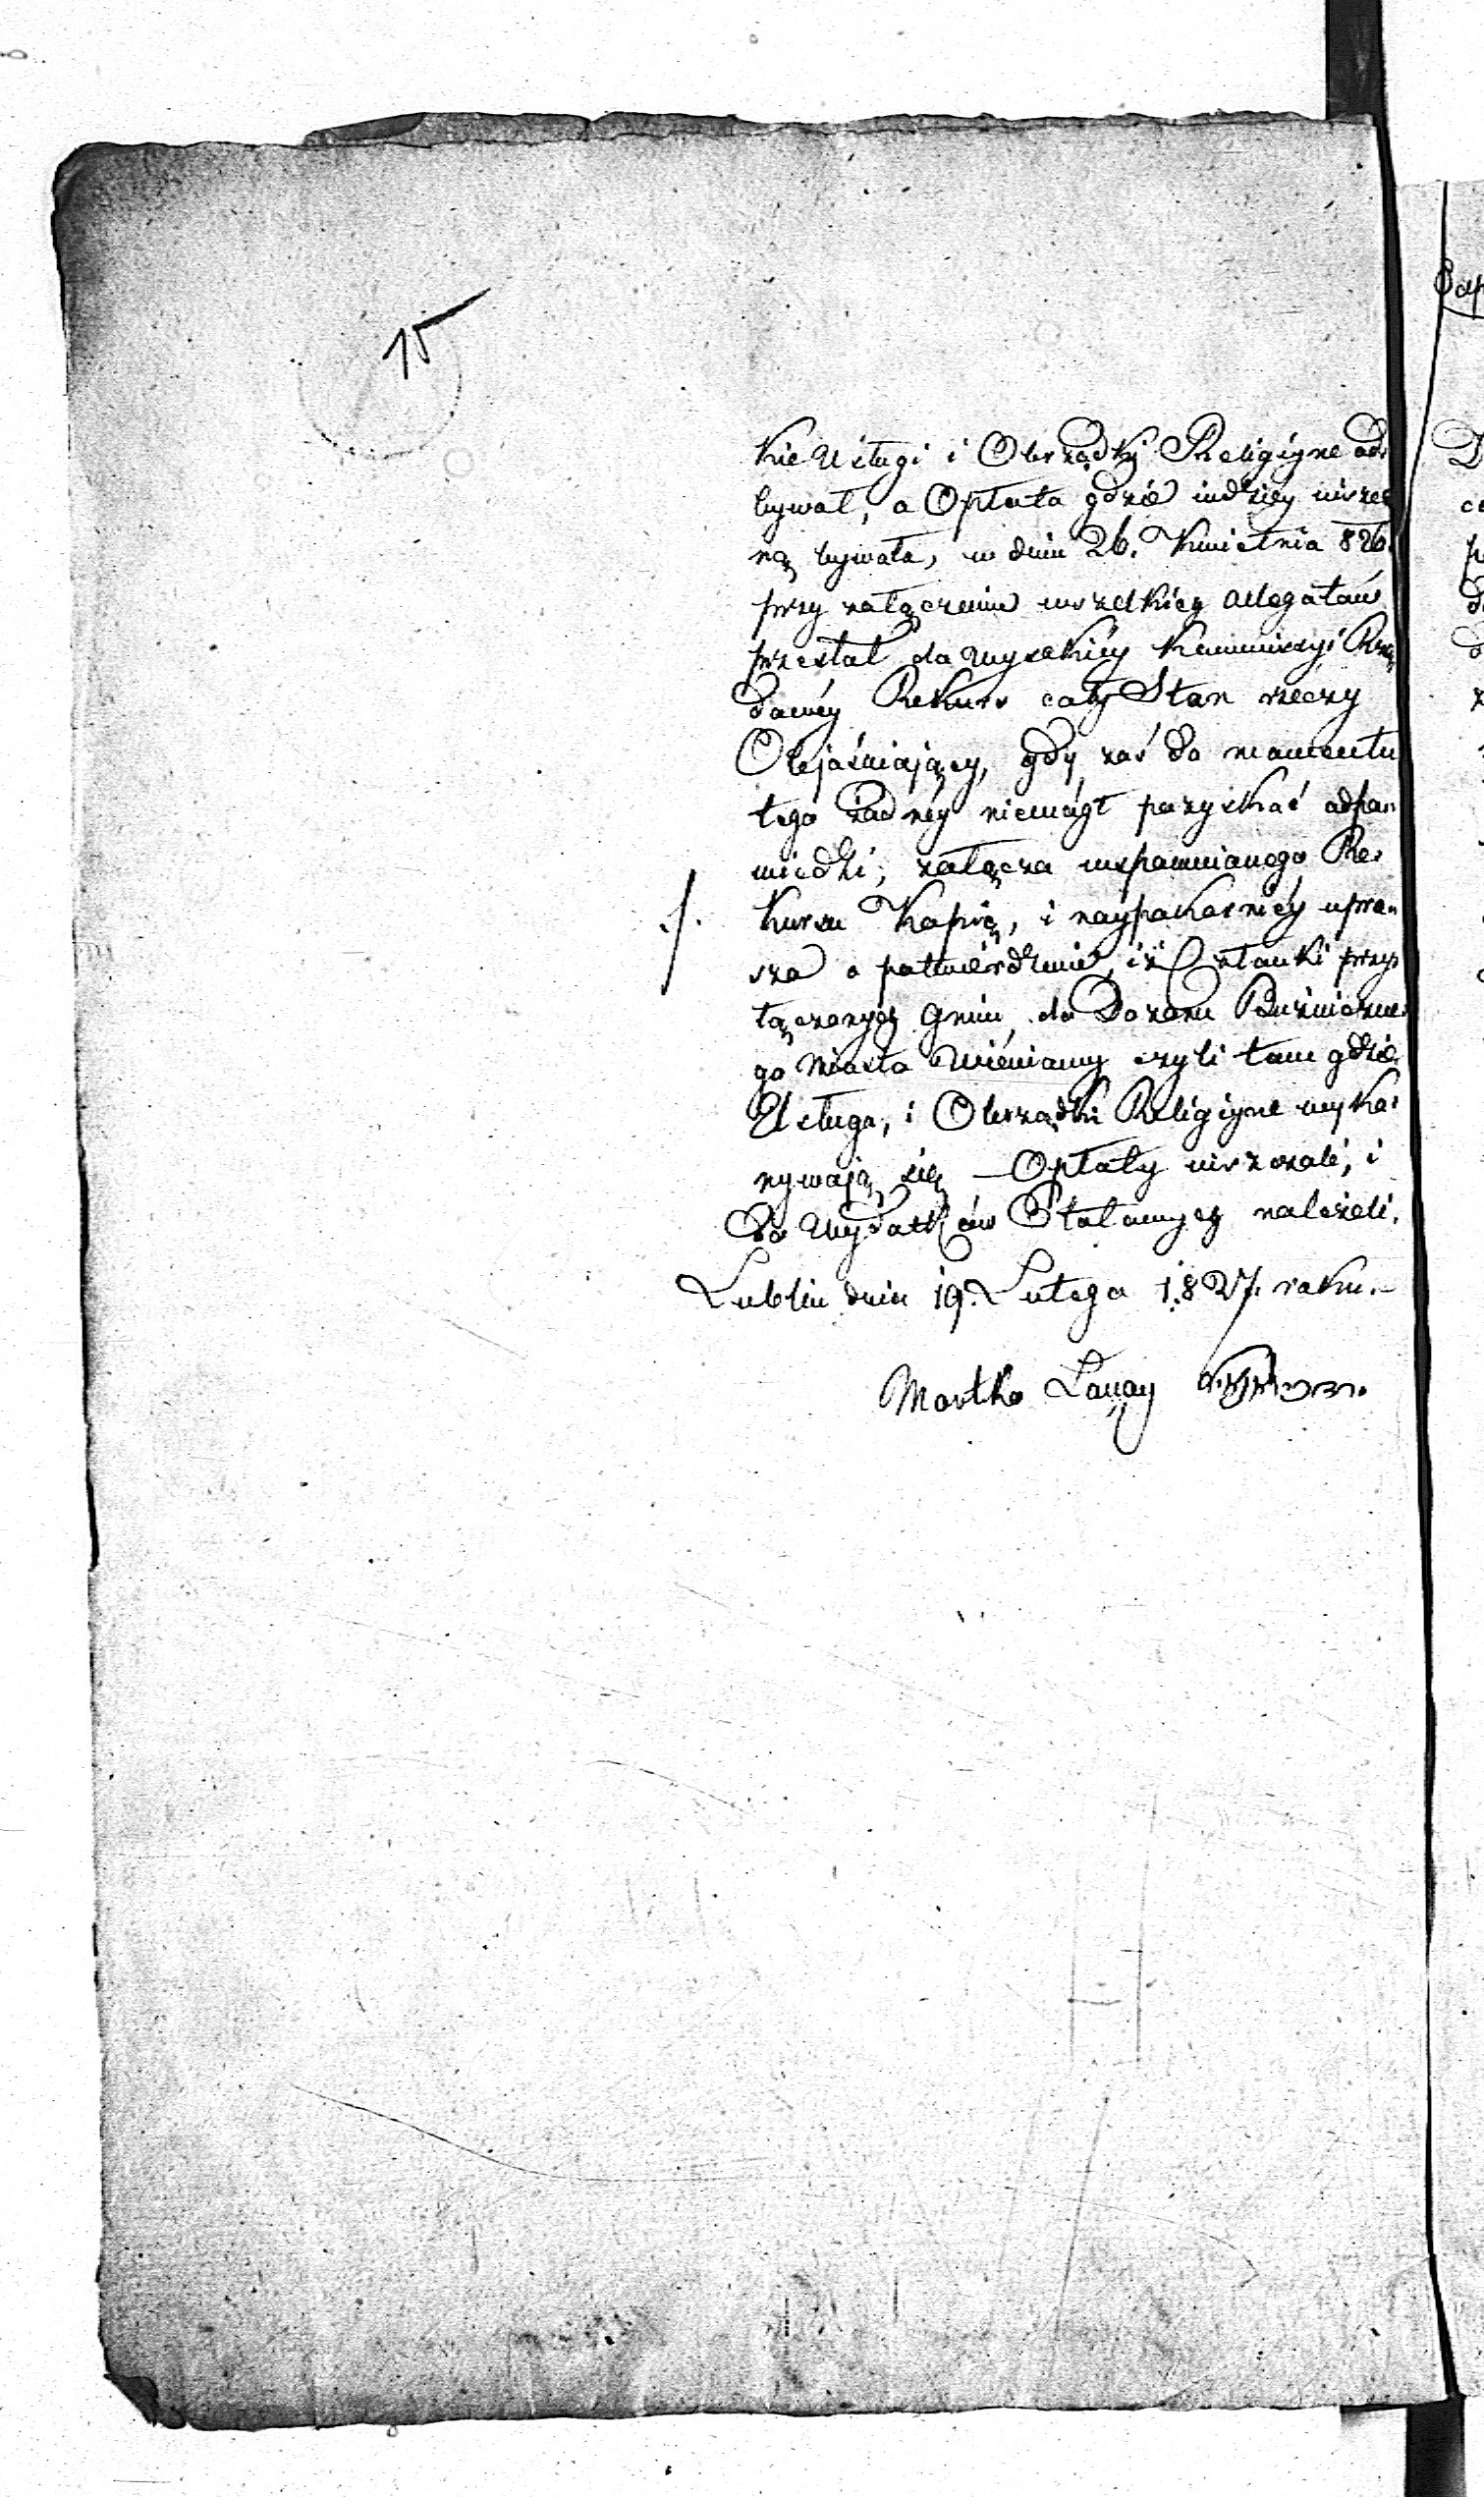 15
kie Usługi i Obrządki Religiyne od-
bywał, a Opłata gdzie indziey wnszo-
ną bywała, w dniu 26. Kwietnia 826.
przy załączeniu wszelkich Allegatów
przesłał do Wysokiéy Kommissyi Rzą-
dowéy Rekurs cały Stan rzeczy
Obejaśniający, gdy zaś do momentu
tego żadnéy niemógł pozyskać odpo-
wiedzi; załącza wspomnianego Re-
kursu Kopią, i naypokorniéy upra-
sza o potwierdzenie, iż Członki przy-
łączonych Gmin do Dozoru Bużniczne-
go Miasta Wieniawy czyli tam gdzie
Usługa, i Obrządki Religiyne wyko-
nywają się – Opłaty wnszoali, i
do Wydatków Etatowych należeli.
Lublin dnia 19. Lutego 1827. roku.–
Mortko